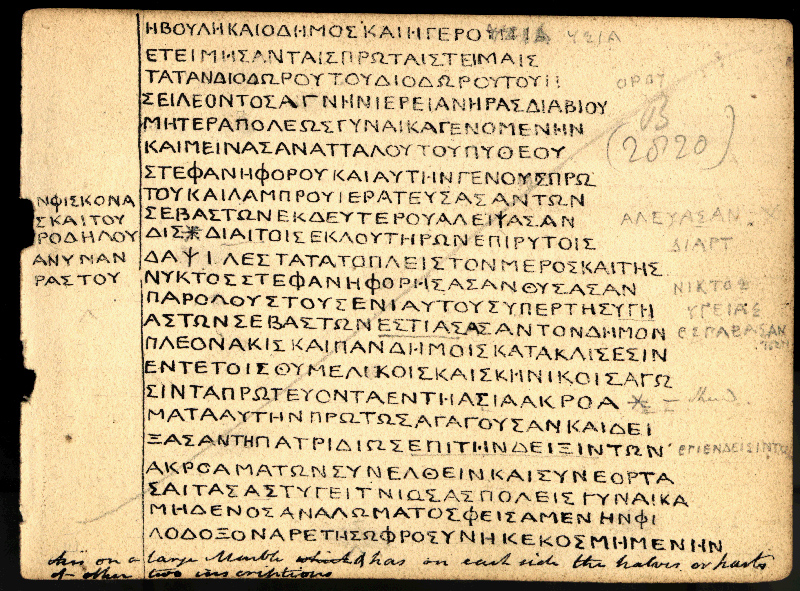 ΗΒΟΥΛΗΚΑΙΟΔΗΜΟΣΚΑΙΗΓΕΡΟΥ ΥΣΙΑ
ΕΤΕΙΜΗΣΑΝΤΑΙΣΠΡΩΤΑΙΣΤΕΙΜΑΙΣ
ΤΑΤΑΝΔΙΟΔΩΡΟΥΤΟΥΔΙΟΔΩΡΟΥΤΟΥ ΟΡΟΥ
ΣΕΙΛΕΟΝΤΟΣΑΓΝΗΝΙΕΡΕΙΑΝΗΡΑΣΔΙΑΒΙΟΥ
ΜΗΤΕΡΑΠΟΛΕΩΣΓΥΝΑΙΚΑΓΕΝΟΜΕΝΗΝ
ΚΑΙΜΕΙΝΑΣΑΝΑΤΤΑΛΟΥΤΟΥΠΥΘΕΟΥ (2820)
ΣΤΕΦΑΝΗΦΟΡΟΥΚΑΙΑΥΤΗΝΓΕΝΟΥΣΠΡΩ
ΝΦΙΣΚΟΝΑ ΤΟΥΚΑΙΛΑΜΠΡΟΥΙΕΡΑΤΕΥΣΑΣΑΝΤΩΝ
ΣΚΑΙΤΟΥ ΣΕΒΑΣΤΩΝΕΚΔΕΥΤΕΡΟΥΑΛΕΙΨΑΣΑΝ ΑΛΕΥΑΣΑΝ
ΡΟΔΗΛΟΥ ΔΙΣ* ΔΙΑΙΤΟΙΣΕΚΛΟΥΤΗΡΩΝΕΠΙΡΥΤΟΙΣ ΔΙΑΡΤ
ΑΝΥΝΑΝ ΔΑΨΙΛΕΣΤΑΤΑΤΟΠΛΕΙΣΤΟΝΜΕΡΟΣΚΑΙΤΗΣ
ΡΑΣΤΟΥ ΝΥΚΤΟΣΣΤΕΦΑΝΗΦΟΡΗΣΑΣΑΝΘΥΣΑΣΑΝ ΝΙΚΤΟΣ
ΠΑΡΟΛΟΥΣΤΟΥΣΕΝΙΑΥΤΟΥΣΥΠΕΡΤΗΣΥΓΗ ΥΓΕΙΑΣ
ΑΣΤΩΝΣΕΒΑΣΤΩΝΕΣΤΙΑΣΑΣΑΝΤΟΝΔΗΜΟΝ
ΠΛΕΟΝΑΚΙΣΚΑΙΠΑΝΔΗΜΟΙΣΚΑΤΑΚΛΙΣΕΣΙΝ
ΕΝΤΕΤΟΙΣΘΥΜΕΛΙΚΟΙΣΚΑΙΣΚΗΝΙΚΟΙΣΑΓΩ
ΣΙΝΤΑΠΡΩΤΕΥΟΝΤΑΕΝΤΗΑΣΙΑΑΚΡΟΑ *
ΜΑΤΑΑΥΤΗΝΠΡΩΤΩΣΑΓΑΓΟΥΣΑΝΚΑΙΔΕΙ
ΞΑΣΑΝΤΗΠΑΤΡΙΔΙΩΣΕΠΙΤΗΝΔΕΙΞΙΝΤΩΝ
ΑΚΡΟΑΜΑΤΩΝΣΥΝΕΛΘΕΙΝΚΑΙΣΥΝΕΟΡΤΑ
ΣΑΙΤΑΣΑΣΤΥΓΕΙΤΝΙΩΣΑΣΠΟΛΕΙΣΓΥΝΑΙΚΑ
ΜΗΔΕΝΟΣΑΝΑΛΩΜΑΤΟΣΦΕΙΣΑΜΕΝΗΝΦΙ
ΛΟΔΟΞΟΝΑΡΕΤΗΣΩΦΡΟΣΥΝΗΚΕΚΟΣΜΗΜΕΝΗΝ
this on a large Marble which has on each side the halves or parts
of other two inscriptions